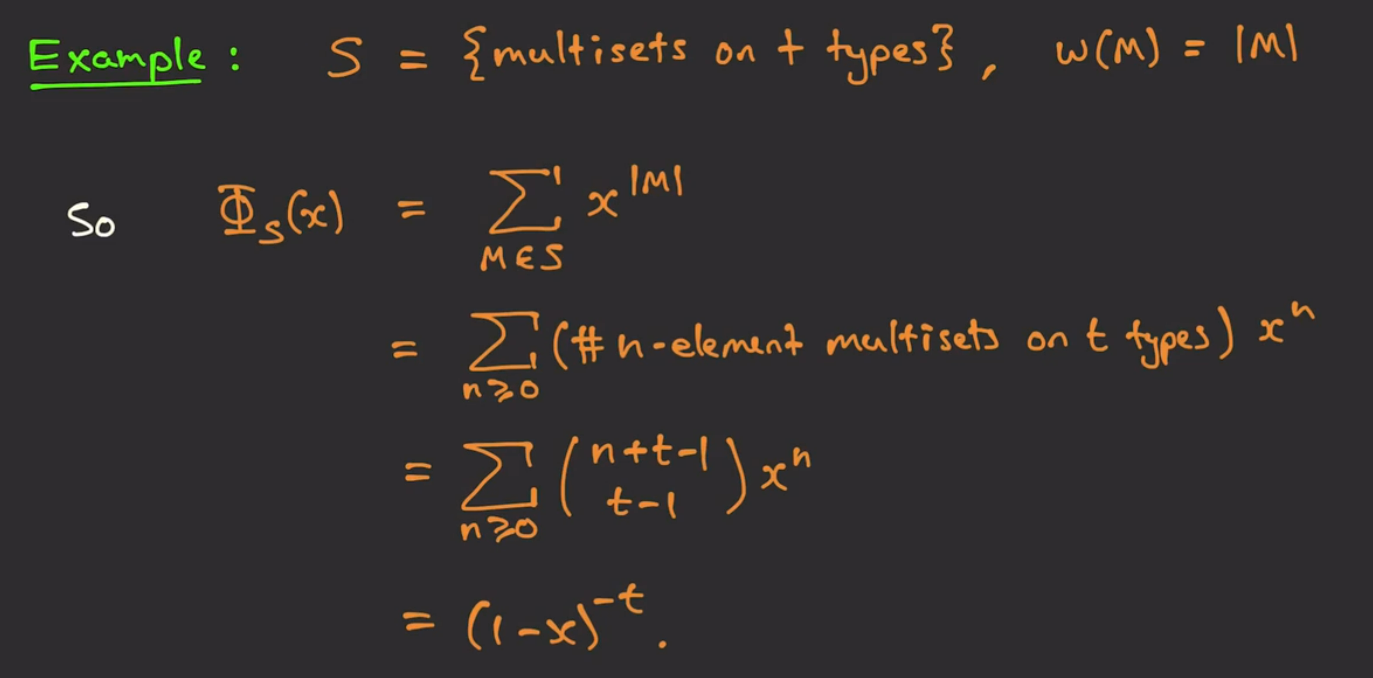 Example: S = {multisets on t types}, w(M) = |M|
So Φ_S(x) = ∑_{M∈S} x^{|M|}
= ∑_{n≥0} (# n-element multisets on t types) x^n
= ∑_{n≥0} \binom{n+t-1}{t-1} x^n
= (1-x)^{-t}.